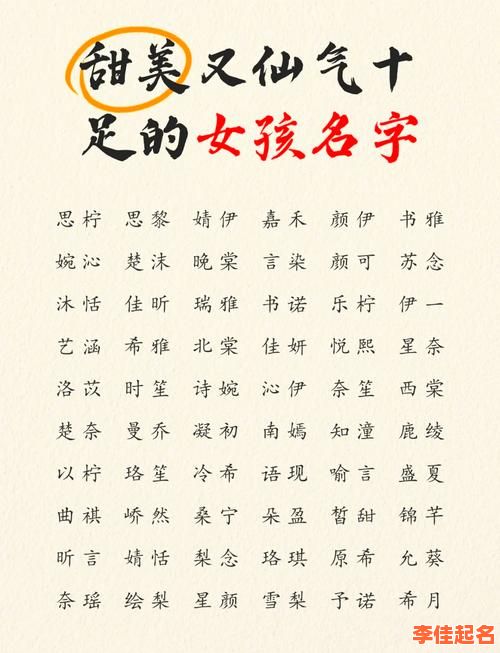 甜美又仙气十
足的女孩名字
思柠 思黎 婧伊 嘉禾 颜伊 书雅
婉沁 楚沫 晚棠 言染 颜可 苏念
沐恬 佳昕 瑞雅 书诺 乐柠 伊一
艺涵 希雅 北棠 佳妍 悦熙 星奈
洛苡 时笙 诗婉 沁伊 奈笙 西棠
楚奈 曼乔 凝初 南嫣 知潼 鹿绫
以柠 珞笙 冷希 语现 喻言 盛夏
曲祺 峤然 桑宁 朵盈 皙甜 锦芊
昕言 婧恬 梨念 珞琪 原希 允葵
奈瑶 绘梨 星颜 雪梨 予诺 希月
李佳起名